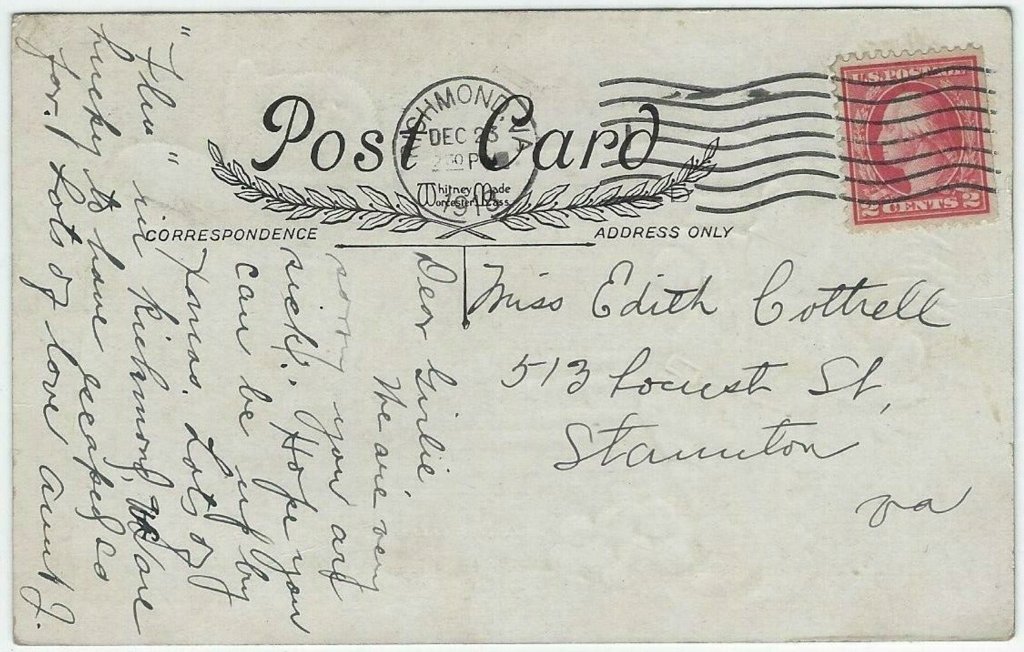 Post Card
RICHMOND, VA.
DEC 23
2 30 P
1918
Whitney Made
Worcester, Mass
U.S. POSTAGE
2 CENTS 2
CORRESPONDENCE
ADDRESS ONLY
Miss Edith Cottrell
513 Locust St,
Staunton
Va
Dear Girlie.
We are very
sorry you are
sick. Hope you
can be up by
Xmas. Lots of
"Flu" in Richmond, We are
lucky to have escaped so
far. Lots of love Aunt J.